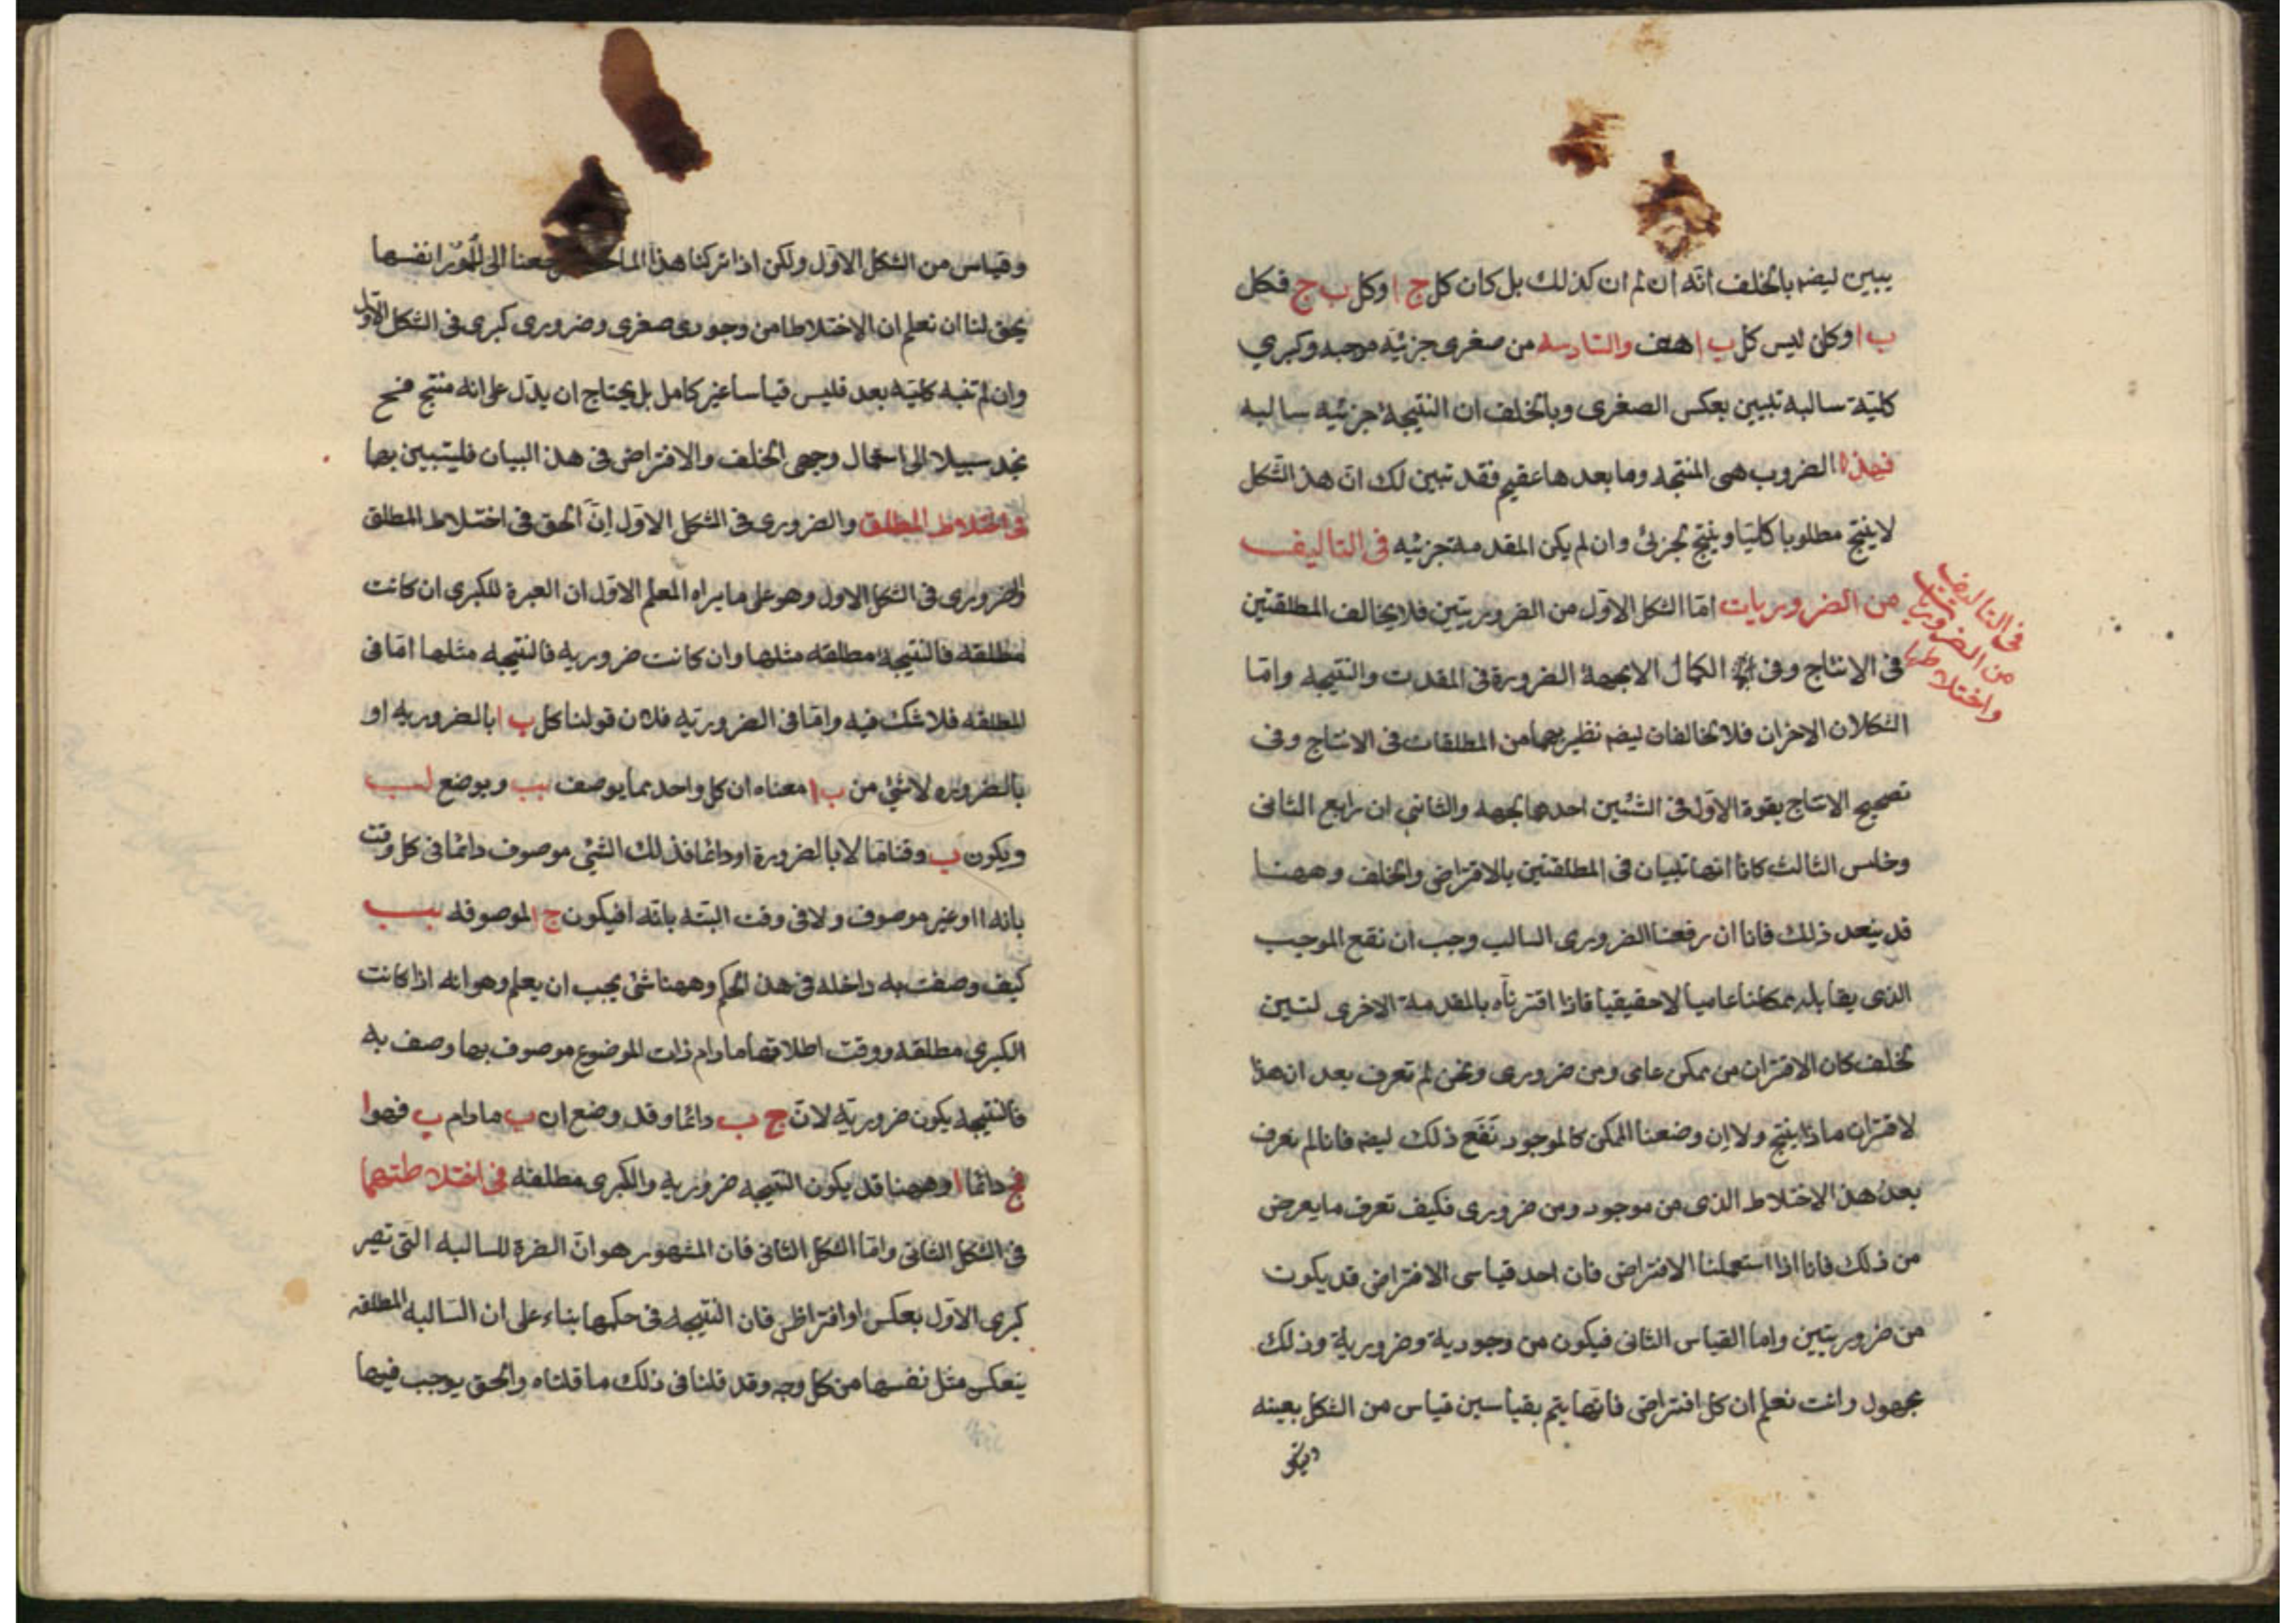 يبين ليضه بالخلف انه ان لم ان كذلك بل كان كل ج ا وكل ب ج فكل
ب ا وكان ليس كل ب ا هف والسادسه من صغرى جزئيه موجبه وكبري
كليّة سالبه تبيين بعكس الصغرى وبالخلف ان النتيجة جزئيه سالبه
فهذه الضروب هى المنتجه وما بعدها عقيم فقد تبين لك ان هذا الشكل
لا ينتج مطلوبا كليا وينتج لجزئى وان لم يكن المقدمة جزئيه فى التاليف
من الضروريات امّا الشكل الاول من الضروريتين فلا يخالف المطلقتين
فى التاليف
من الضروريات
واختلاطها
فى الانتاج وفى الكمال الا بجهة الضرورة فى المقدمت والنتيجه وامّا
الشكلان الاخران فلا تخالفان ليضه نظيريهما من المطلقات فى الانتاج وفى
تصحيح الانتاج بقوة الاول فى الشئين احدهما بجهه والثانى ان رابع الثانى
وخامس الثالث كانا انما تبيان فى المطلقتين بالافتراض والخلف وههنا
قد يتعد ذلك فانا ان رفعنا الضرورى السالب وجب ان نقع الموجب
الذى يقابله ممكنا عاميا لا حقيقيا فاذا اقترناه بالمقدمة الاخرى لتبين
لخلف كان الاقتران من ممكن عامى ومن ضرورى ونحن لم نعرف بعد ان هذا
لاقتران ماذا ينتج ولا ان وضعنا الممكن كالموجود نفع ذلك ليضه فانا لم نعرف
بعد هذا الاختلاط الذى من موجود ومن ضرورى فكيف نعرف ما يعرض
من ذلك فانا اذا استعملنا الافتراض فان احد قياسى الافتراض قد يكون
من ضروريتين واما القياس الثانى فيكون من وجودية وضرورية وذلك
مجهول وانت تعلم ان كل افتراض فانما يتم بقياسين قياس من الشكل بعينه
وقياس من الشكل الاول ولكن اذا تركنا هذا رجعنا الى الامور انفسها
يحق لنا ان نعلم ان الاختلاطا من وجودى صغرى وضرورى كبرى فى الشكل الاول
وان لم تفيه كليّة بعد فليس قياسا غير كامل بل يحتاج ان يدل على انه منتج فنح
نجد سبيلا الى استعمال وجهى الخلف والافتراض فى هذا البيان فليتبين بها
فى اختلاط المطلق والضرورى فى الشكل الاول انّ الحق فى اختلاط المطلق
والضرورى فى الشكل الاول وهو على ما يراه المعلم الاول ان العبرة للكبرى ان كانت
مطلقه فالنتيجة مطلقه مثلها وان كانت ضروريه فالنتيجه مثلها امّا فى
المطلقه فلا شك فيه وامّا فى الضروريّه فلان قولنا كل ب ا بالضروريه او
بالضروره لا شئ من ب ا معناه ان كل واحد مما يوصف ببب ويوضع لبب
ويكون ب وقتا مّا لا بالضرورة او دائما فذلك الشئ موصوف دائما فى كل وقت
بانه ا او غير موصوف ولا فى وقت البته بانه ا فيكون ج الموصوفه ببب
كيف وصفت به داخله فى هذا الحكم وههنا شئ يجب ان يعلم وهو انه اذا كانت
الكبرى مطلقه ووقت اطلاقها ما دام ذات الموضوع موصوف بما وصف به
فالنتيجه يكون ضروريّة لانّ ج ب دائما وقد وضع ان ب ما دام ب فهو ا
فج دائما ا وههنا قد يكون النتيجه ضروريه والكبرى مطلقه فى اختلاطتهما
فى الشكل الثانى وامّا الشكل الثانى فان المشهور هو انّ العبرة للسالبه التى تصير
كبرى الاول بعكس او افتراض فان النتيجه فى حكمها بناء على ان السالبه المطلقه
ينعكس مثل نفسها من كل وجه وقد قلنا فى ذلك ما قلناه والحق يوجب فيها